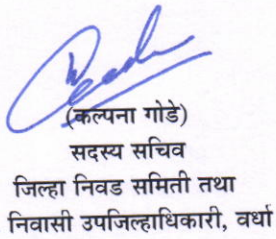 (कल्पना गोडे)
सदस्य सचिव
जिल्हा निवड समिती तथा
निवासी उपजिल्हाधिकारी, वर्धा